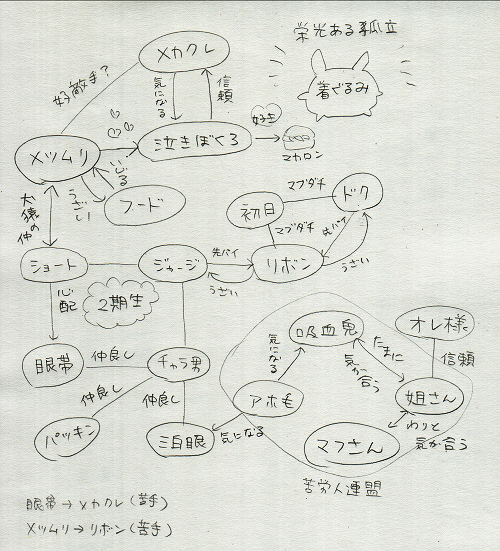 栄光ある孤立
メカクレ
着ぐるみ
好敵手？
気になる
信頼
好き
泣きぼくろ
マカロン
メツムリ
いじる
うざい
フード
マブダチ
ドク
初日
マブダチ
先パイ
犬猿の仲
ショート
ジャージ
先パイ
うざい
リボン
うざい
心配
2期生
吸血鬼
オレ様
気になる
たまに
気が合う
信頼
眼帯
仲良し
チャラ男
アホ毛
姐さん
仲良し
仲良し
パッキン
三白眼
気になる
マフさん
わりと
気が合う
苦労人連盟
眼帯→メカクレ(苦手)
メツムリ→リボン(苦手)